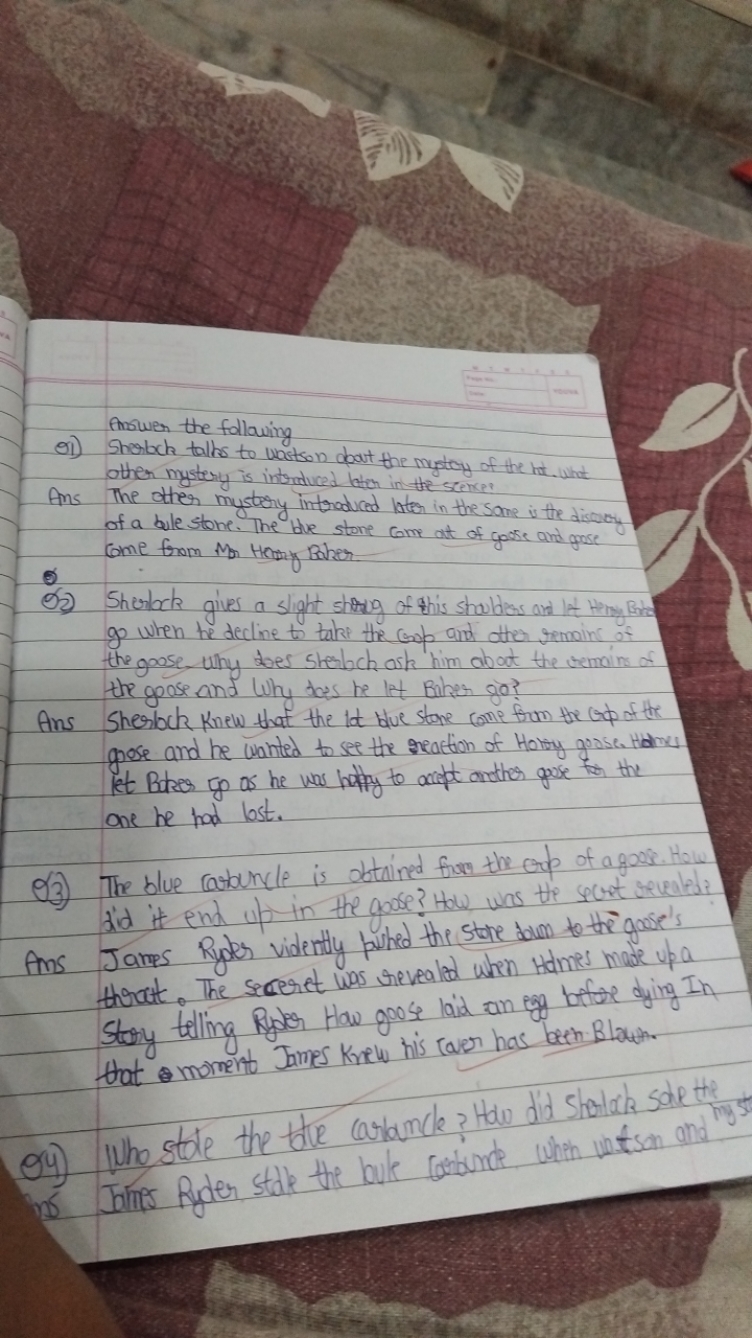 Page No.
Date
Answer the following
Q1) Sherlock talks to wastson about the mystery of the hat. What
other mystery is introduced later in the scence?
Ans The other mystery introduced later in the same is the discovery
of a bule stone. The blue stone come out of goose and goose
come from Mr Henry Baker
Q2) Sherlock gives a slight shrug of this shoulders and let Henry Baker
go when he decline to take the Crop and other remains of
the goose. Why does Sherloch ask him about the remains of
the goose and Why does he let Baker go?
Ans Sherlock Knew that the lot blue stone come from the Crop of the
goose and he wanted to see the reaction of Harry goose. Holmes
let Baker go as he was happy to accept another goose for the
one he had lost.
Q3) The blue carbuncle is obtained from the crop of a goose. How
did it end up in the goose? How was the secret revealed?
Ans James Ryder vidently pushed the stone down to the goose's
theroat. The seceret was revealed when Holmes made up a
Story telling Ryder How goose laid an egg before dying In
that moment James Knew his caver has been Blown.
Q4) Who stole the blue carbuncle? How did Sherlock solve the
myst
Ans James Ryder stole the bule carbuncle. When watson and